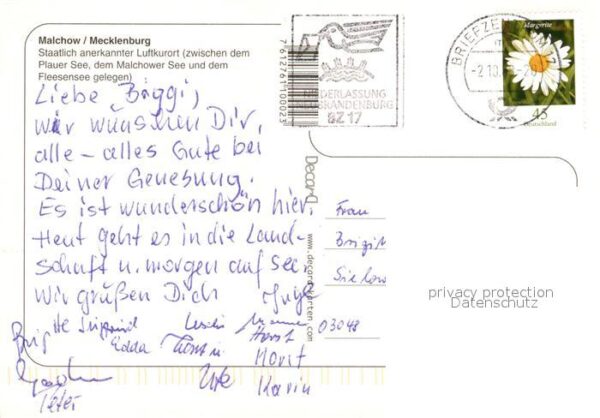 Malchow / Mecklenburg
Staatlich anerkannter Luftkurort (zwischen dem
Plauer See, dem Malchower See und dem
Fleesensee gelegen)
Liebe Briggi,
wir wünschen Dir,
alle - alles Gute bei
Deiner Genesung.
Es ist wunderschön hier.
Heut geht es in die Land-
schaft u. morgen auf See.
Wir grüßen Dich
Horst
Edda
Horst
Ute
Karin
Peter
7612761100023
NIEDERLASSUNG
NEUBRANDENBURG
BZ 17
BRIEFZENTRUM 17
Margerite
45
Deutschland
Decard
www.decard-karten.com
Frau
03048
privacy protection
Datenschutz